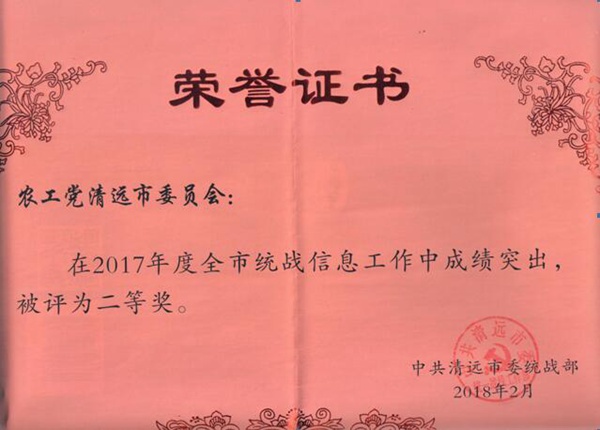 荣誉证书
农工党清远市委员会：
在2017年度全市统战信息工作中成绩突出，
被评为二等奖。
中共清远市委统战部
2018年2月